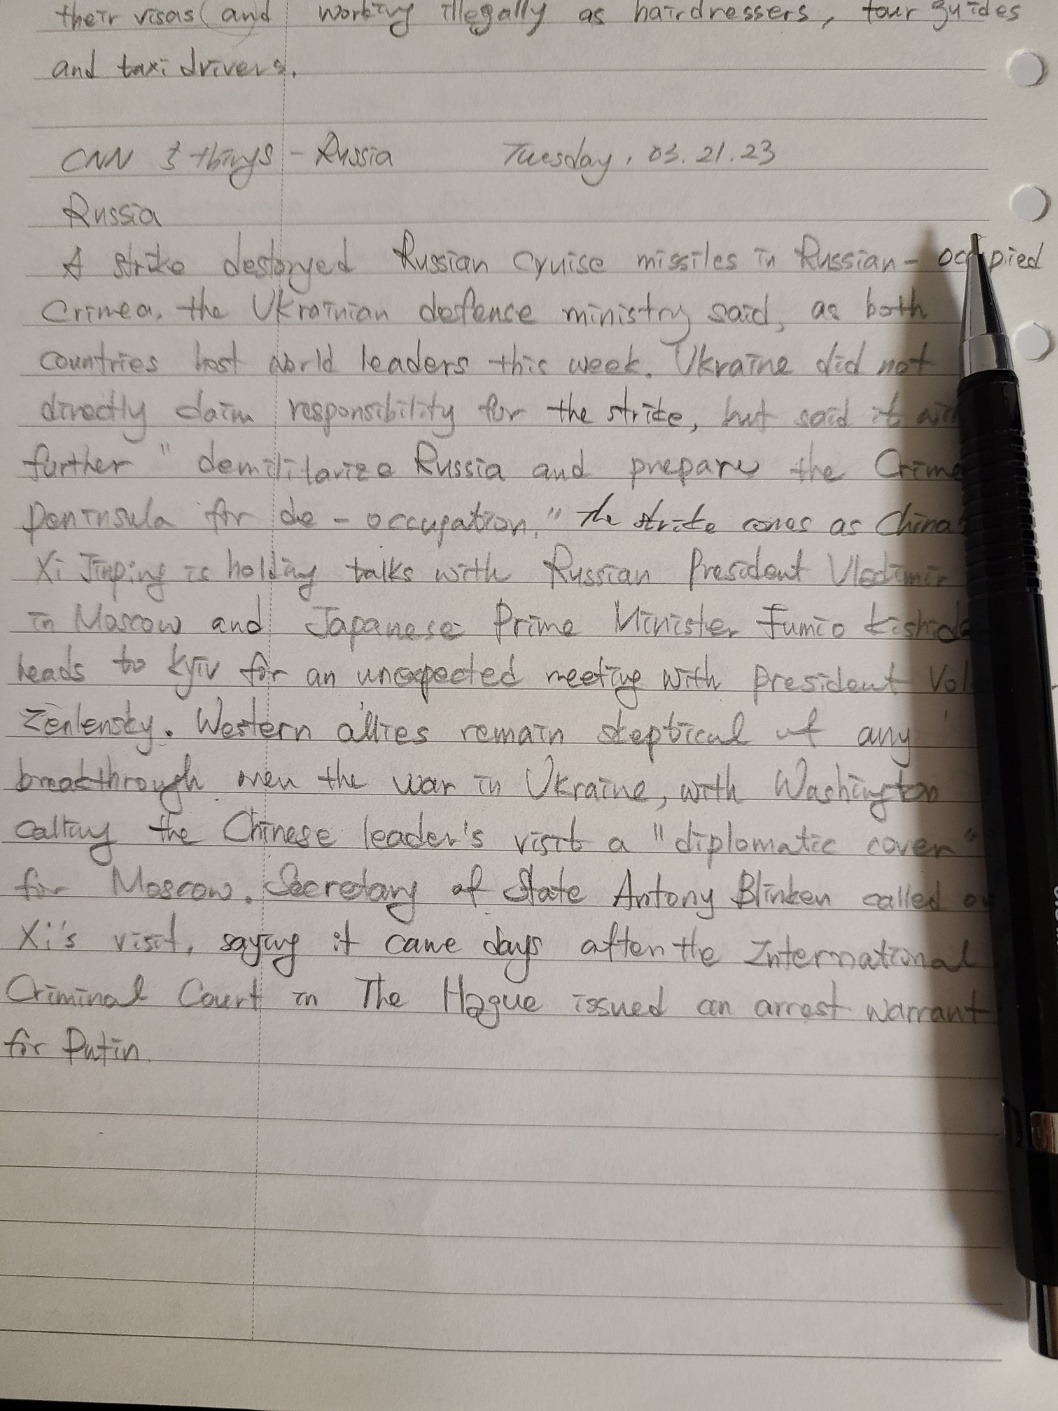 their visas (and working illegally as hairdressers, tour guides
and taxi drivers.
CNN 5 things - Russia Tuesday, 03.21.23
Russia
A strike destoryed Russian cruise missiles in Russian-occupied
Crimea, the Ukrainian defence ministry said, as both
countries host world leaders this week. Ukraine did not
directly claim responsibility for the strike, but said it
further "demilitarize Russia and prepare the Crime
Peninsula for de-occupation." The strike comes as China
Xi Jinping is holding talks with Russian President Vladimir
in Moscow and Japanese Prime Minister Fumio Kishida
heads to Kyiv for an unexpected meeting with president Vol
Zenlensky. Western allies remain skeptical of any
breakthrough the war in Ukraine, with Washington
calling the Chinese leader's visit a "diplomatic cover"
for Moscow. Secretary of State Antony Blinken called
Xi's visit, saying it came days after the International
Criminal Court in The Hague issued an arrest warrant
for Putin.